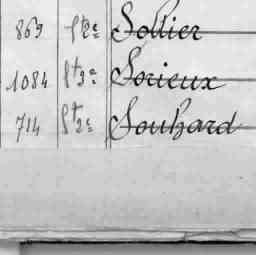 869 St 2e Sollier
1084 St 3e Sorieux
714 St 2e Souhard